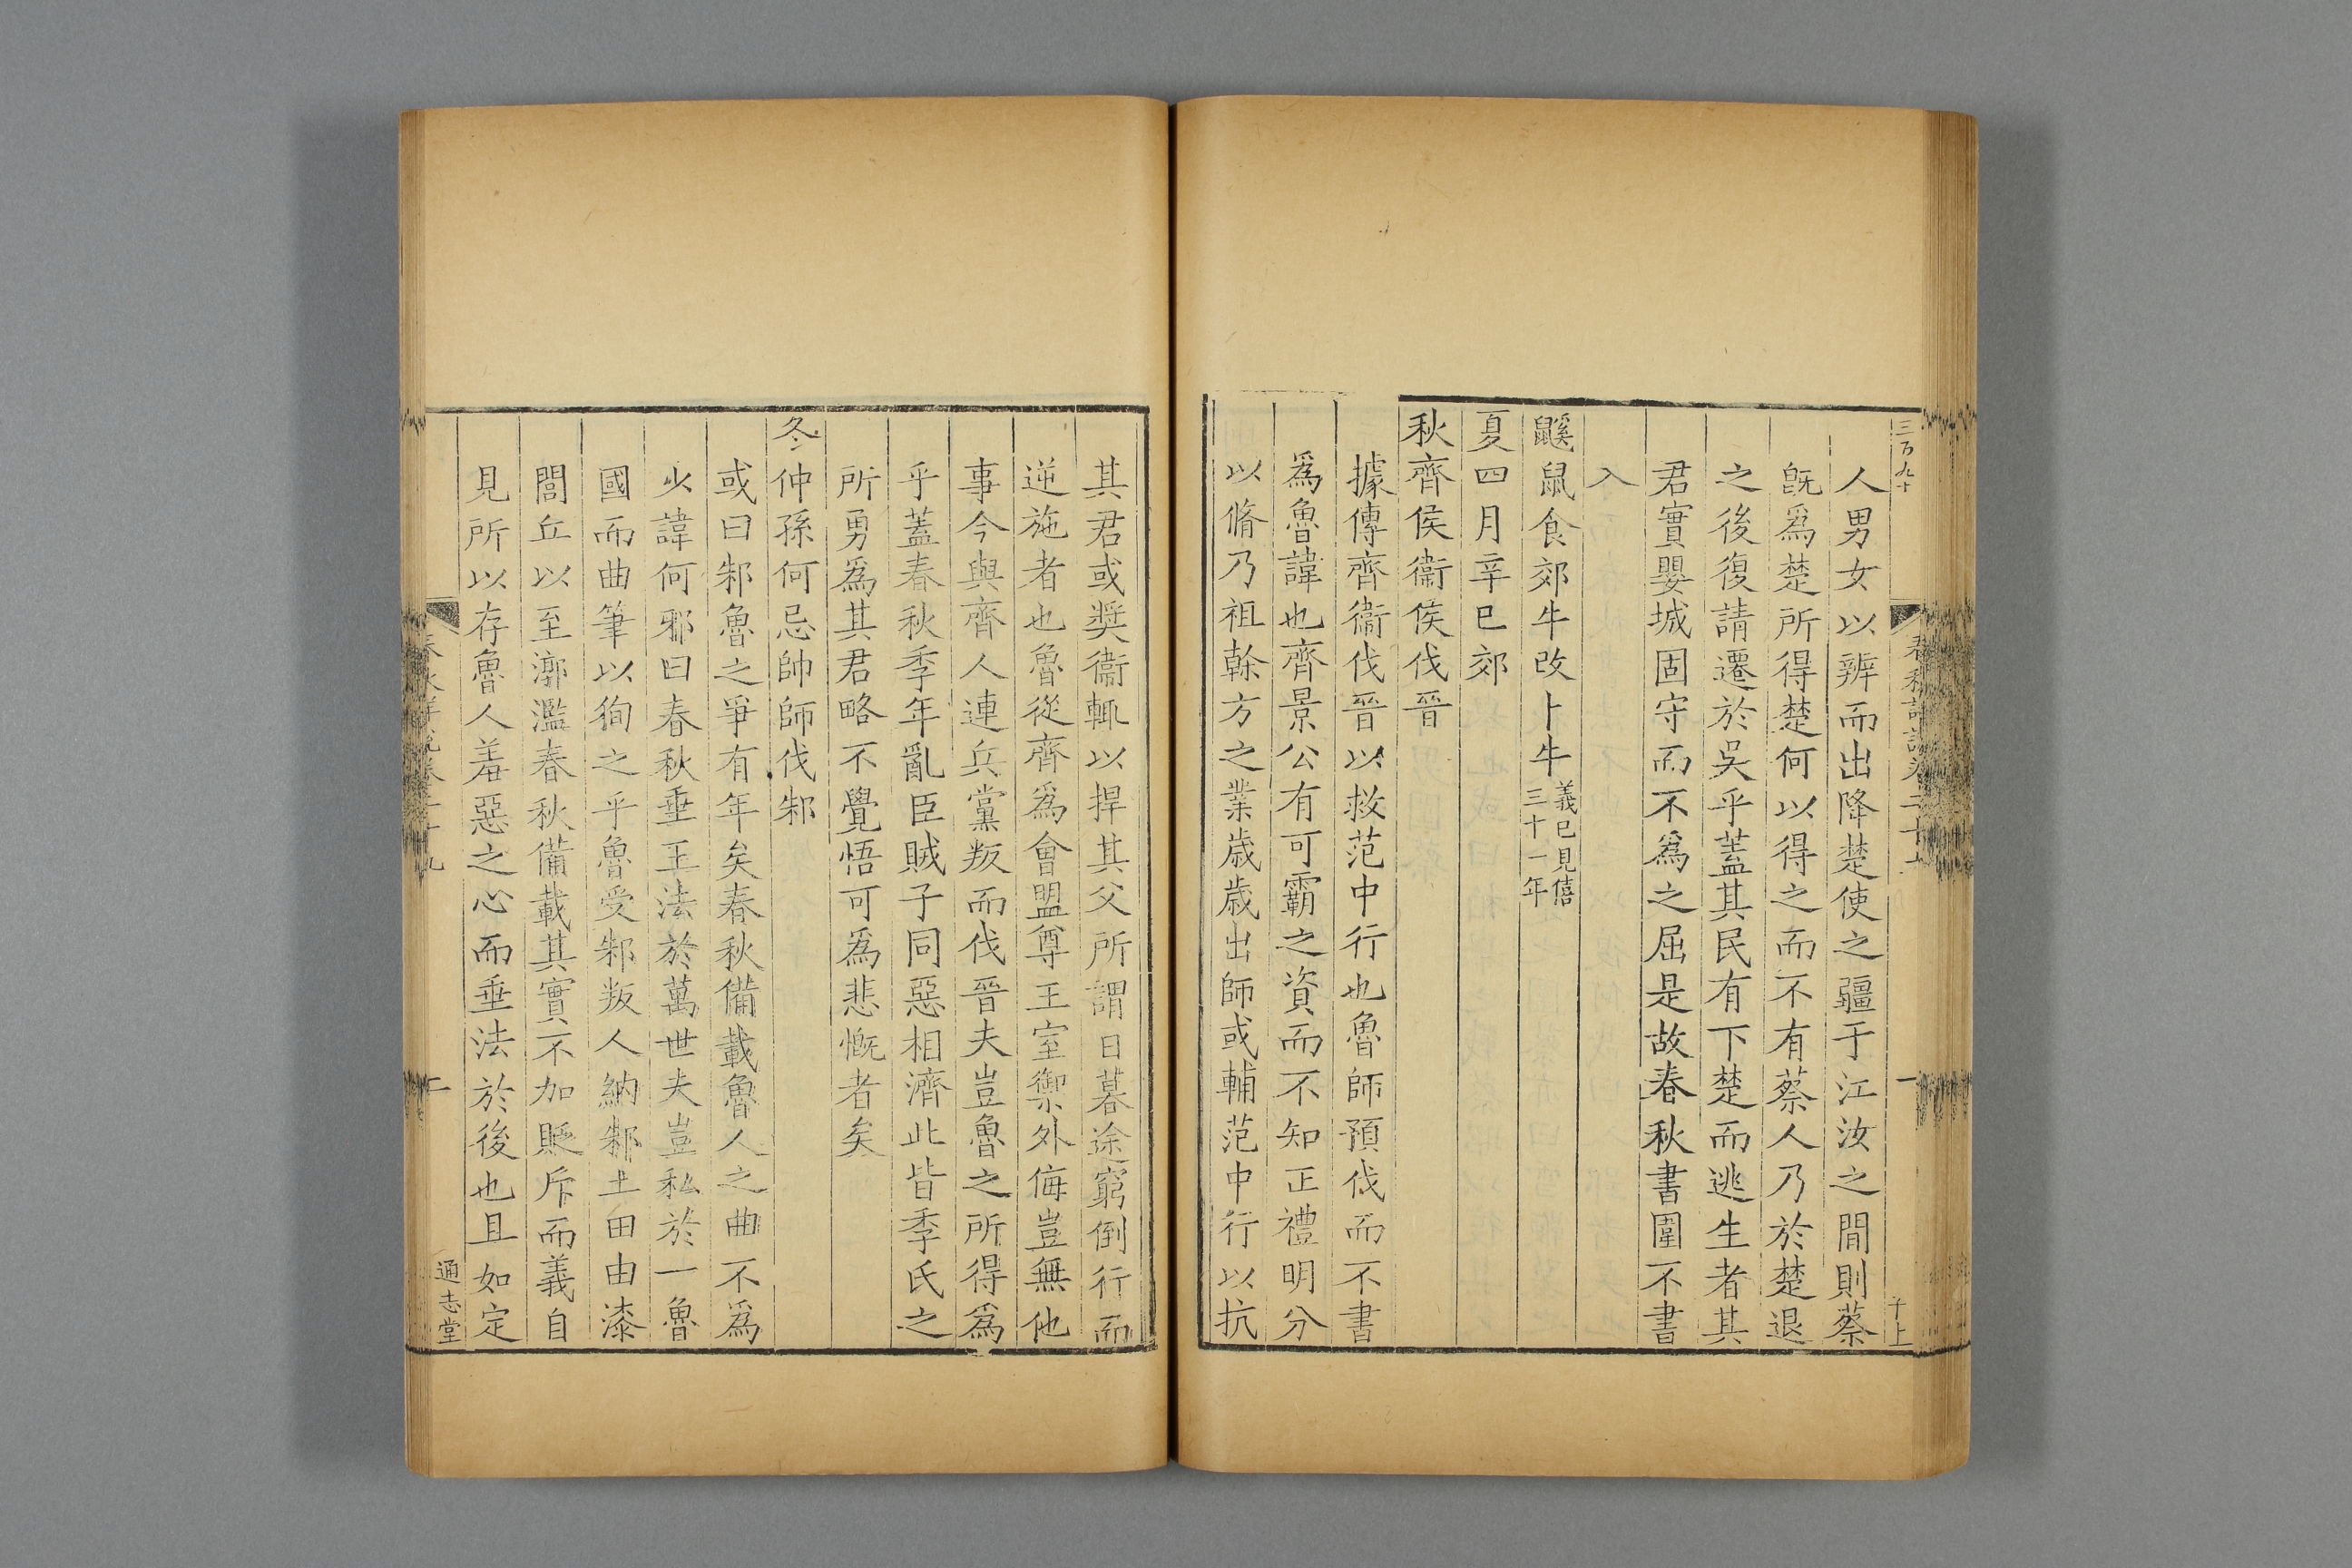 三百九十
春秋詳說卷二十九
一
子上
人男女以辨而出降楚使之疆于江汝之間則蔡
旣爲楚所得楚何以得之而不有蔡人乃於楚退
之後復請遷於吳乎蓋其民有下楚而逃生者其
君實嬰城固守而不爲之屈是故春秋書圍不書
入
鼷鼠食郊牛改卜牛義已見僖
三十一年
夏四月辛巳郊
秋齊侯衞侯伐晉
據傳齊衞伐晉以救范中行也魯師預伐而不書
爲魯諱也齊景公有可霸之資而不知正禮明分
以脩乃祖榦方之業歲歲出師或輔范中行以抗
其君或奬衞輒以捍其父所謂日暮途窮倒行而
逆施者也魯從齊爲會盟尊王室禦外侮豈無他
事今與齊人連兵黨叛而伐晉夫豈魯之所得爲
乎蓋春秋季年亂臣賊子同惡相濟此皆季氏之
所勇爲其君略不覺悟可爲悲慨者矣
冬仲孫何忌帥師伐邾
或曰邾魯之爭有年矣春秋備載魯人之曲不爲
少諱何邪曰春秋垂王法於萬世夫豈私於一魯
國而曲筆以徇之乎魯受邾叛人納邾土田由漆
閭丘以至漷濫春秋備載其實不加貶斥而義自
見所以存魯人羞惡之心而垂法於後也且如定
春秋詳說卷二十九
二
通志堂